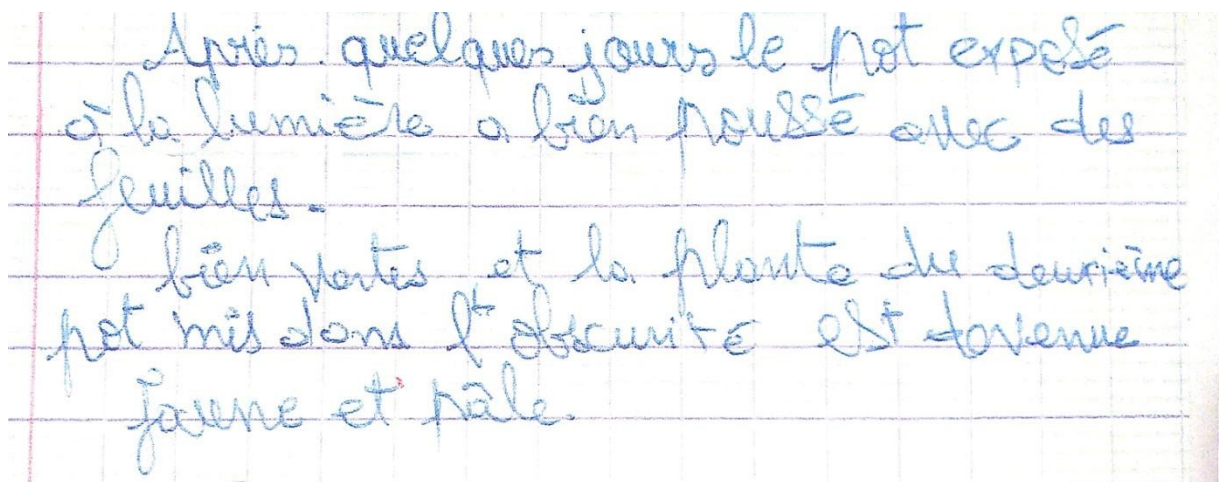 Après quelques jours le pot exposé
à la lumière a bien poussé avec des
feuilles.
bien vertes et la plante du deuxième
pot mis dans l'obscurité est devenue
jaune et pâle.